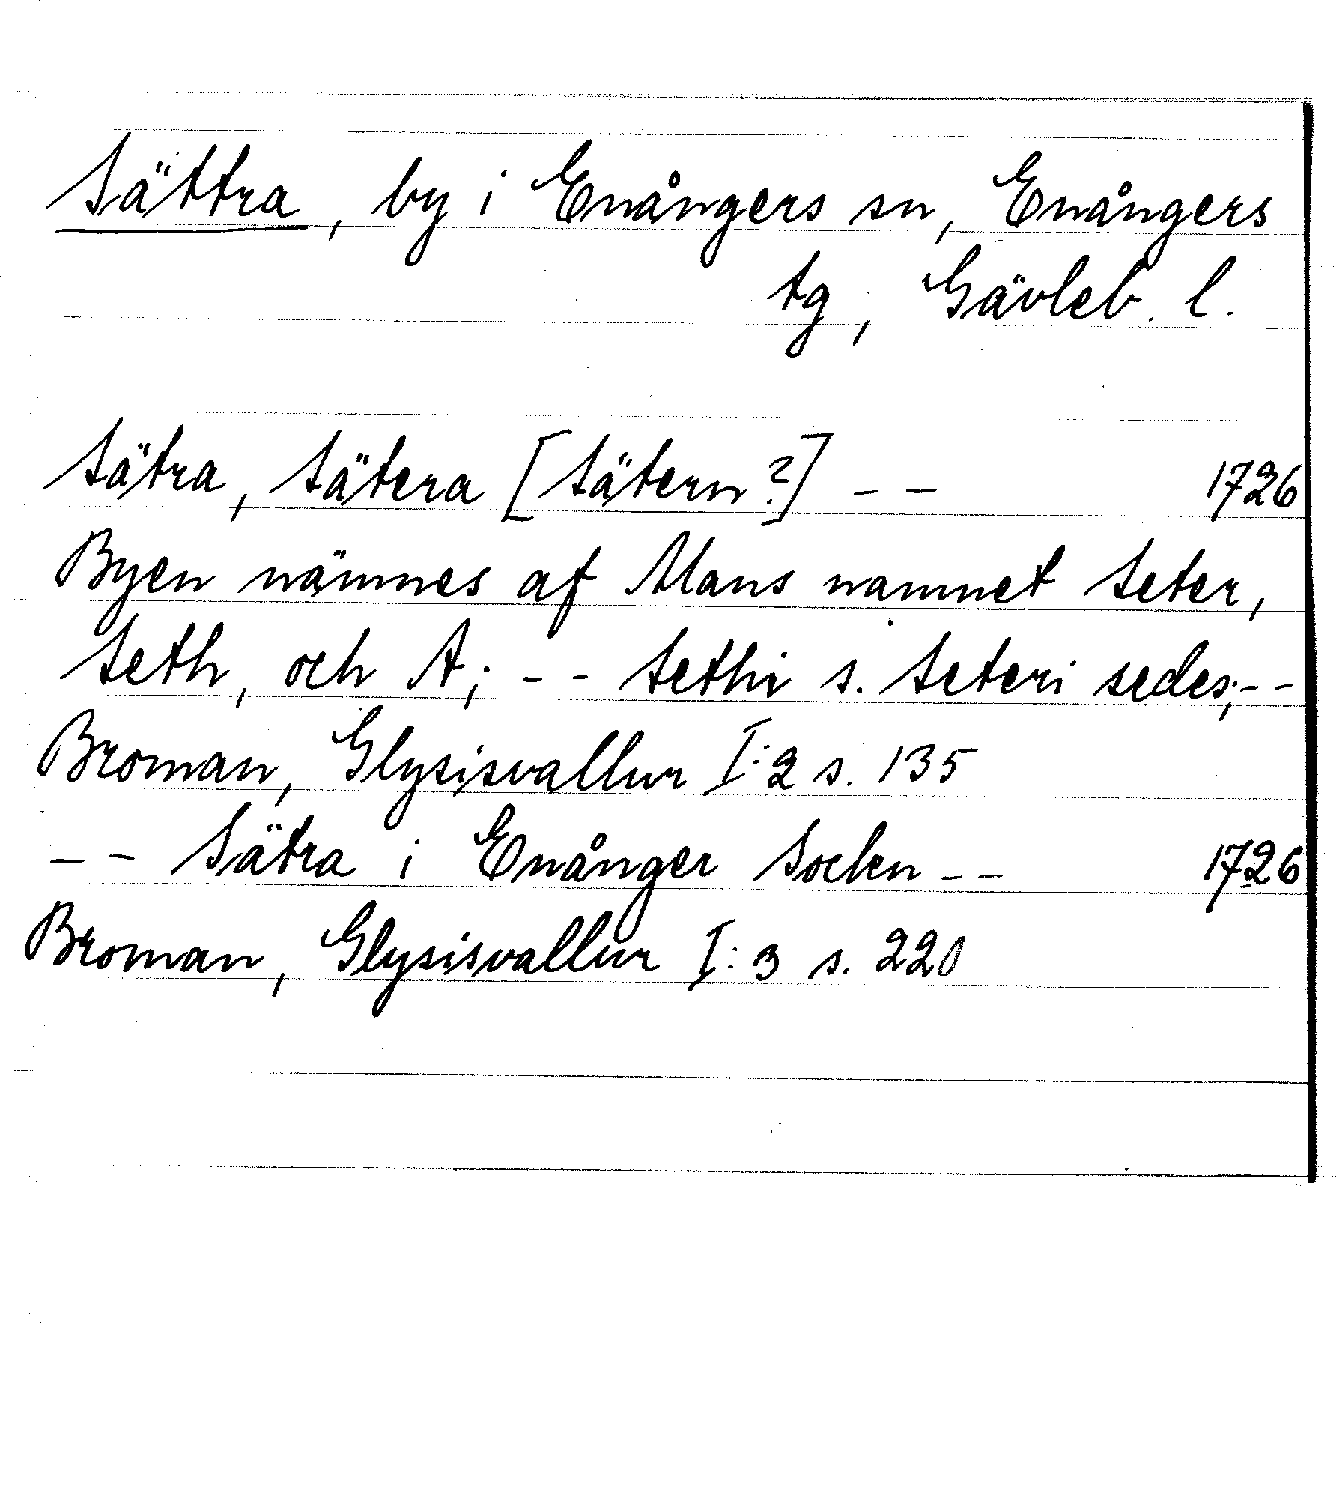 Sättra, by i Enångers sn, Enångers
tg, Gävleb. l.
Sätra, Sätera [Sätern?] – – 1726
Byen nämnes af Mans namnet Seter,
Seth, och A; – – Sethi s. Seteri sedes; – –
Broman, Glysisvallur I:2 s. 135
– – Sätra i Enånger Soclen – – 1726
Broman, Glysisvallur I:3 s. 220